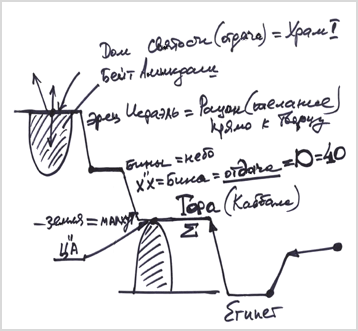 Дом святости (отдача) = Храм I
Бейт Амикдаш
Эрец Исраэль = Рацон (желание)
Прямо к Творцу
Бины = небо
Х"Х = Бина = отдача = ם = 40
Тора (Каббала)
Σ
-земля = малхут
Ц"А
Египет